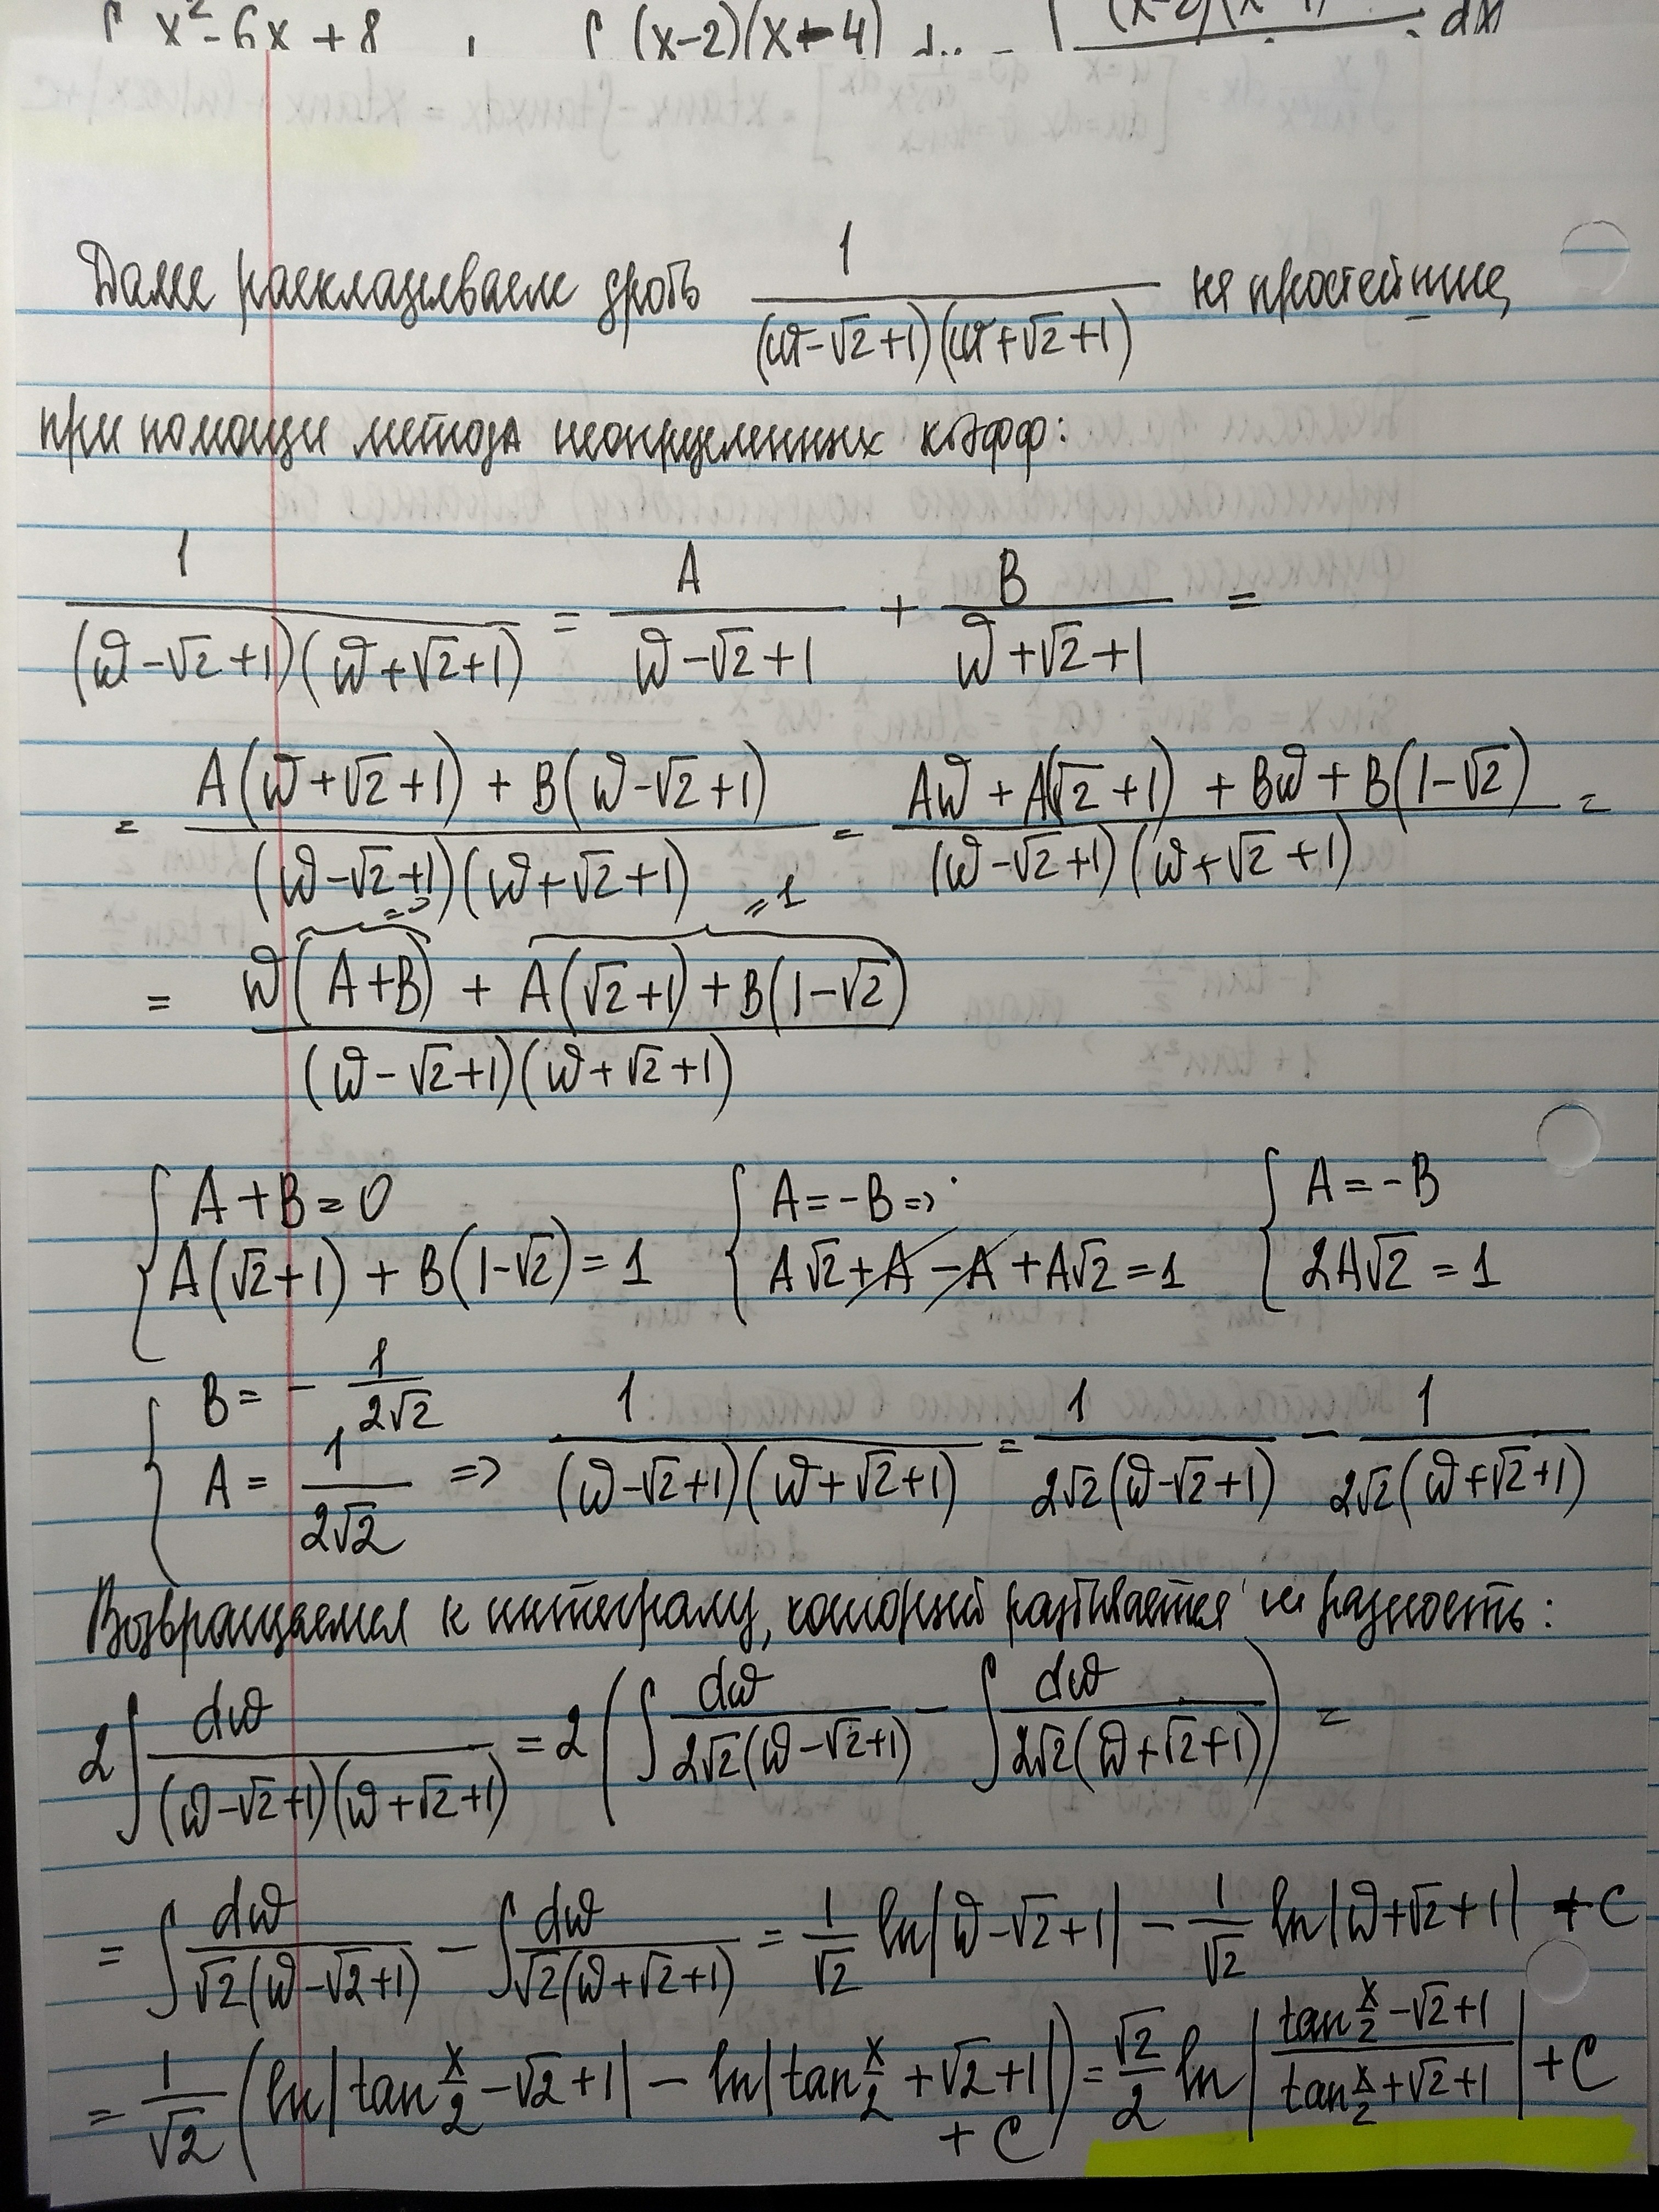 ∫ x²-6x+8 , ∫ (x-2)(x-4)
Далее раскладываем дробь 1/((ω-√2+1)(ω+√2+1)) на простейшие,
при помощи метода неопределенных коэфф:
1/((ω-√2+1)(ω+√2+1)) = A/(ω-√2+1) + B/(ω+√2+1) =
= (A(ω+√2+1) + B(ω-√2+1))/((ω-√2+1)(ω+√2+1)) = (Aω + A(√2+1) + Bω + B(1-√2))/((ω-√2+1)(ω+√2+1)) =
=0 =1
= (ω(A+B) + A(√2+1) + B(1-√2))/((ω-√2+1)(ω+√2+1))
{ A+B=0 { A=-B => { A=-B
A(√2+1) + B(1-√2) = 1 A√2+A-A+A√2=1 2A√2=1
{ B= - 1/(2√2)
A = 1/(2√2) => 1/((ω-√2+1)(ω+√2+1)) = 1/(2√2(ω-√2+1)) - 1/(2√2(ω+√2+1))
Возвращаемся к интегралу, который разбивается на разность:
2∫ dω/((ω-√2+1)(ω+√2+1)) = 2(∫ dω/(2√2(ω-√2+1)) - ∫ dω/(2√2(ω+√2+1))) =
= ∫ dω/(√2(ω-√2+1)) - ∫ dω/(√2(ω+√2+1)) = 1/√2 ln|ω-√2+1| - 1/√2 ln|ω+√2+1| + C
= 1/√2 (ln|tan x/2 -√2+1| - ln|tan x/2 +√2+1|) + C = √2/2 ln|(tan x/2 -√2+1)/(tan x/2 +√2+1)| + C